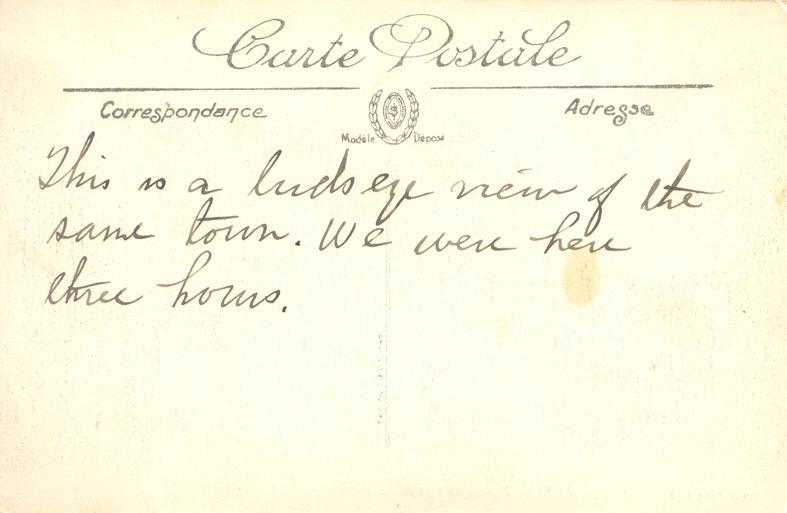 Carte Postale
Correspondance
Adresse
Modèle Déposé
This is a birdseye view of the
same town. We were here
three hours.